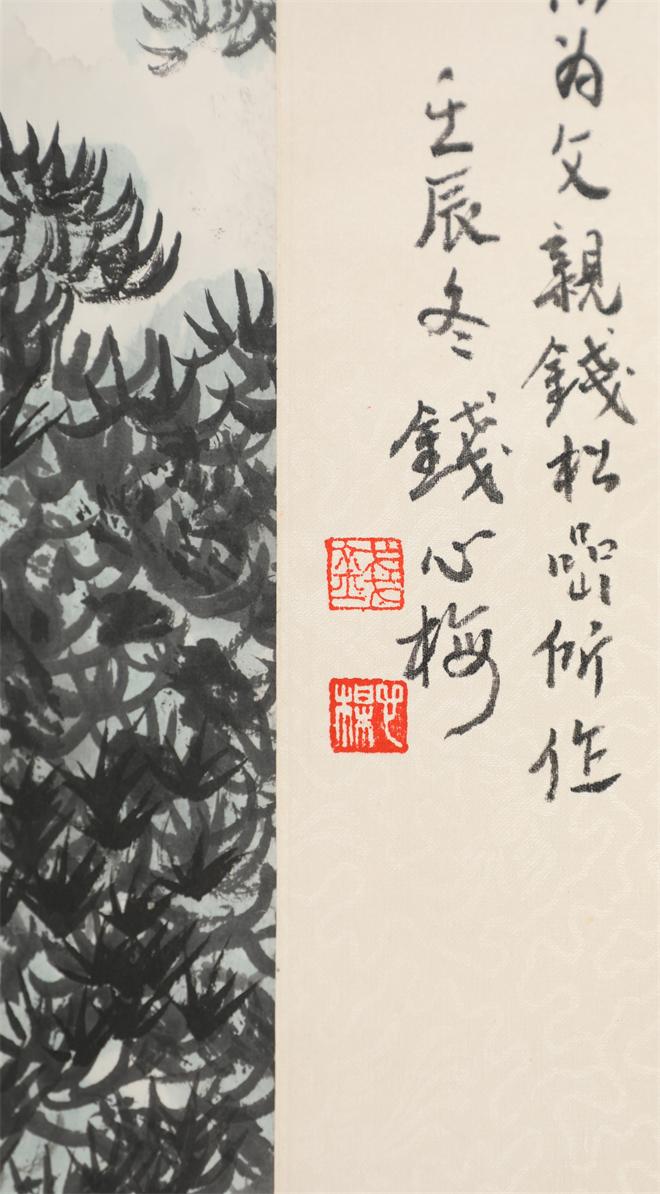 为父親錢松嵒所作
壬辰冬 錢心梅
心楳